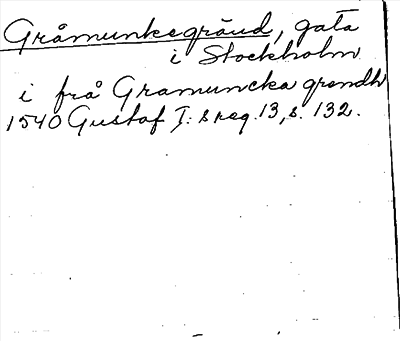 Gråmunkegränd, gata
i Stockholm
i frå Gramuncka grendh
1540 Gustaf I: s reg. 13, s. 132.